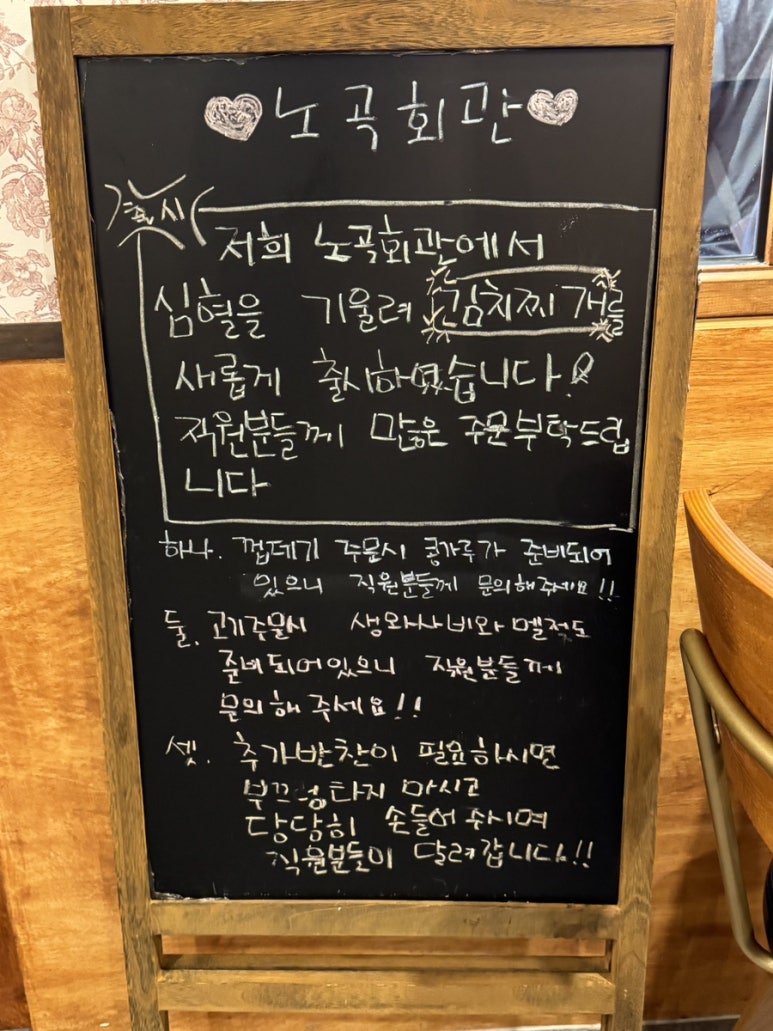 노곡회관
출시
저희 노곡회관에서
심혈을 기울려 김치찌개를
새롭게 출시하였습니다!
직원분들께 많은 주문부탁드립
니다
하나. 껍데기 주문시 콩가루가 준비되어
있으니 직원분들께 문의해주세요!!
둘. 고기주문시 생와사비와 멜젓도
준비되어있으니 직원분들께
문의해 주세요!!
셋. 추가반찬이 필요하시면
부끄럼타지 마시고
당당히 손들어 주시며
직원분들이 달려갑니다!!